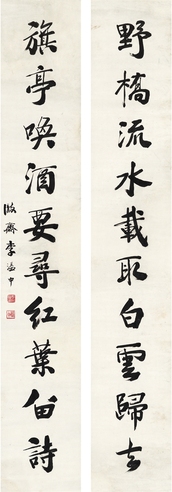 野橋流水載取白雲歸去
旗亭喚酒要尋紅葉留詩